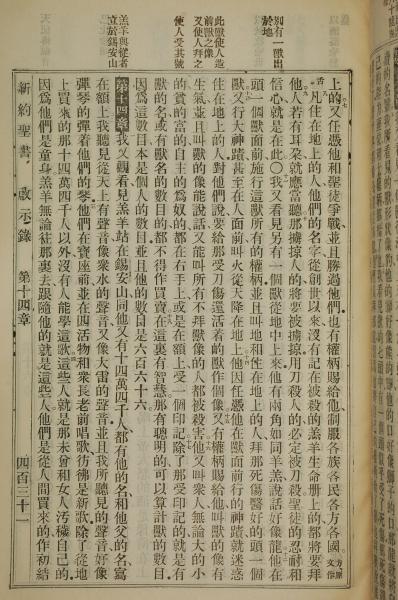 別有一獸出
於地
此獸使人造
前獸之像
又使人拜之
使人受其號
羔羊與從者
立於錫安山
上的又任憑他和聖徒爭戰並且勝過他們也有權柄賜給他制服各族各民各方各國方原文作舌
凡住在地上的人他們的名字從創世以來沒有記在被殺的羔羊生命册上的都將要拜
他人若有耳朶就應當聽那擄掠人的將要被擄掠用刀殺人的必定被刀殺聖徒的忍耐和
信心就是在此〇我又看見另有一個獸從地中上來他有兩角如同羊羔說話好像龍他在
頭一個獸面前施行這獸所有的權柄並且叫地和住在地上的人拜那死傷醫好的頭一個
獸又行大神蹟甚至在人面前叫火從天降在地上他因任憑他在獸面前行的神蹟就迷惑
住在地上的人對他們說要給那受刀傷還活着的獸作個像又有權柄賜給他叫獸像有
生氣並且叫獸的像能說話又能叫所有不拜獸像的人都被殺害他又叫衆人無論大的小
的貴的富的自主的爲奴的都在右手上或是在額上受一個印記除了那受印記的就是有
獸的名或有獸名的數目的都不得作買賣在這裏有智慧那有聰明的可以算計獸的數目
因爲這數目本是個人的數目並且他的數目是六百六十六
第十四章我又觀看見羔羊站在錫安山同他又有十四萬四千人都有他的名和他父的名寫
在額上我聽見從天上有聲音像衆水的聲音又像大雷的聲音並且我所聽見的聲音好像
彈琴的彈着他們的琴他們在寶座前並在四活物和衆長老前唱歌彷彿是新歌除了從地
上買來的那十四萬四千人以外沒有人能學這歌這些人就是那未曾和女人污穢自己的
因爲他們是童身羔羊無論往那裏去跟隨他的就是這些人他們是從人間買來的作初結
新約聖書 啟示錄 第十四章 四百三十一